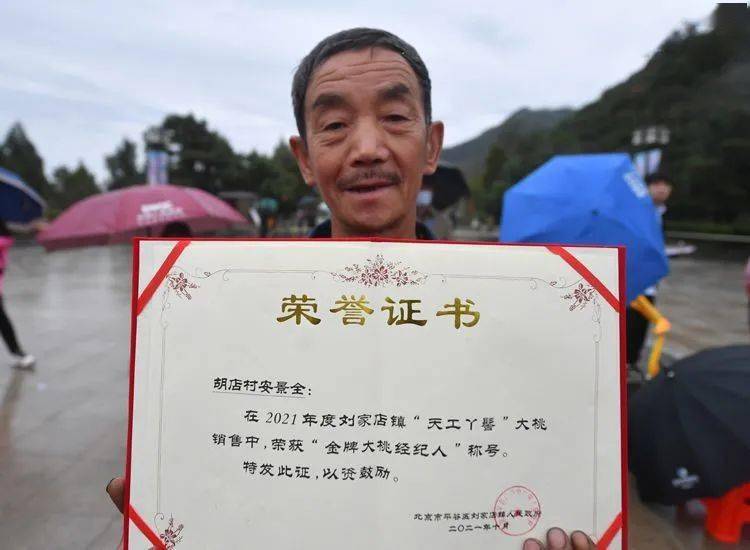 荣誉证书
胡店村安景全:
在2021年度刘家店镇“天工丫髻”大桃
销售中,荣获“金牌大桃经纪人”称号。
特发此证,以资鼓励。
北京市平谷区刘家店镇人民政府
二〇二一年十月